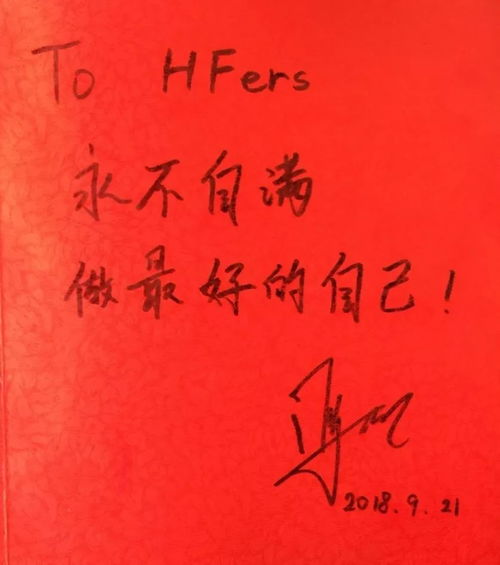 To HFers
永不自满
做最好的自己!
2018.9.21